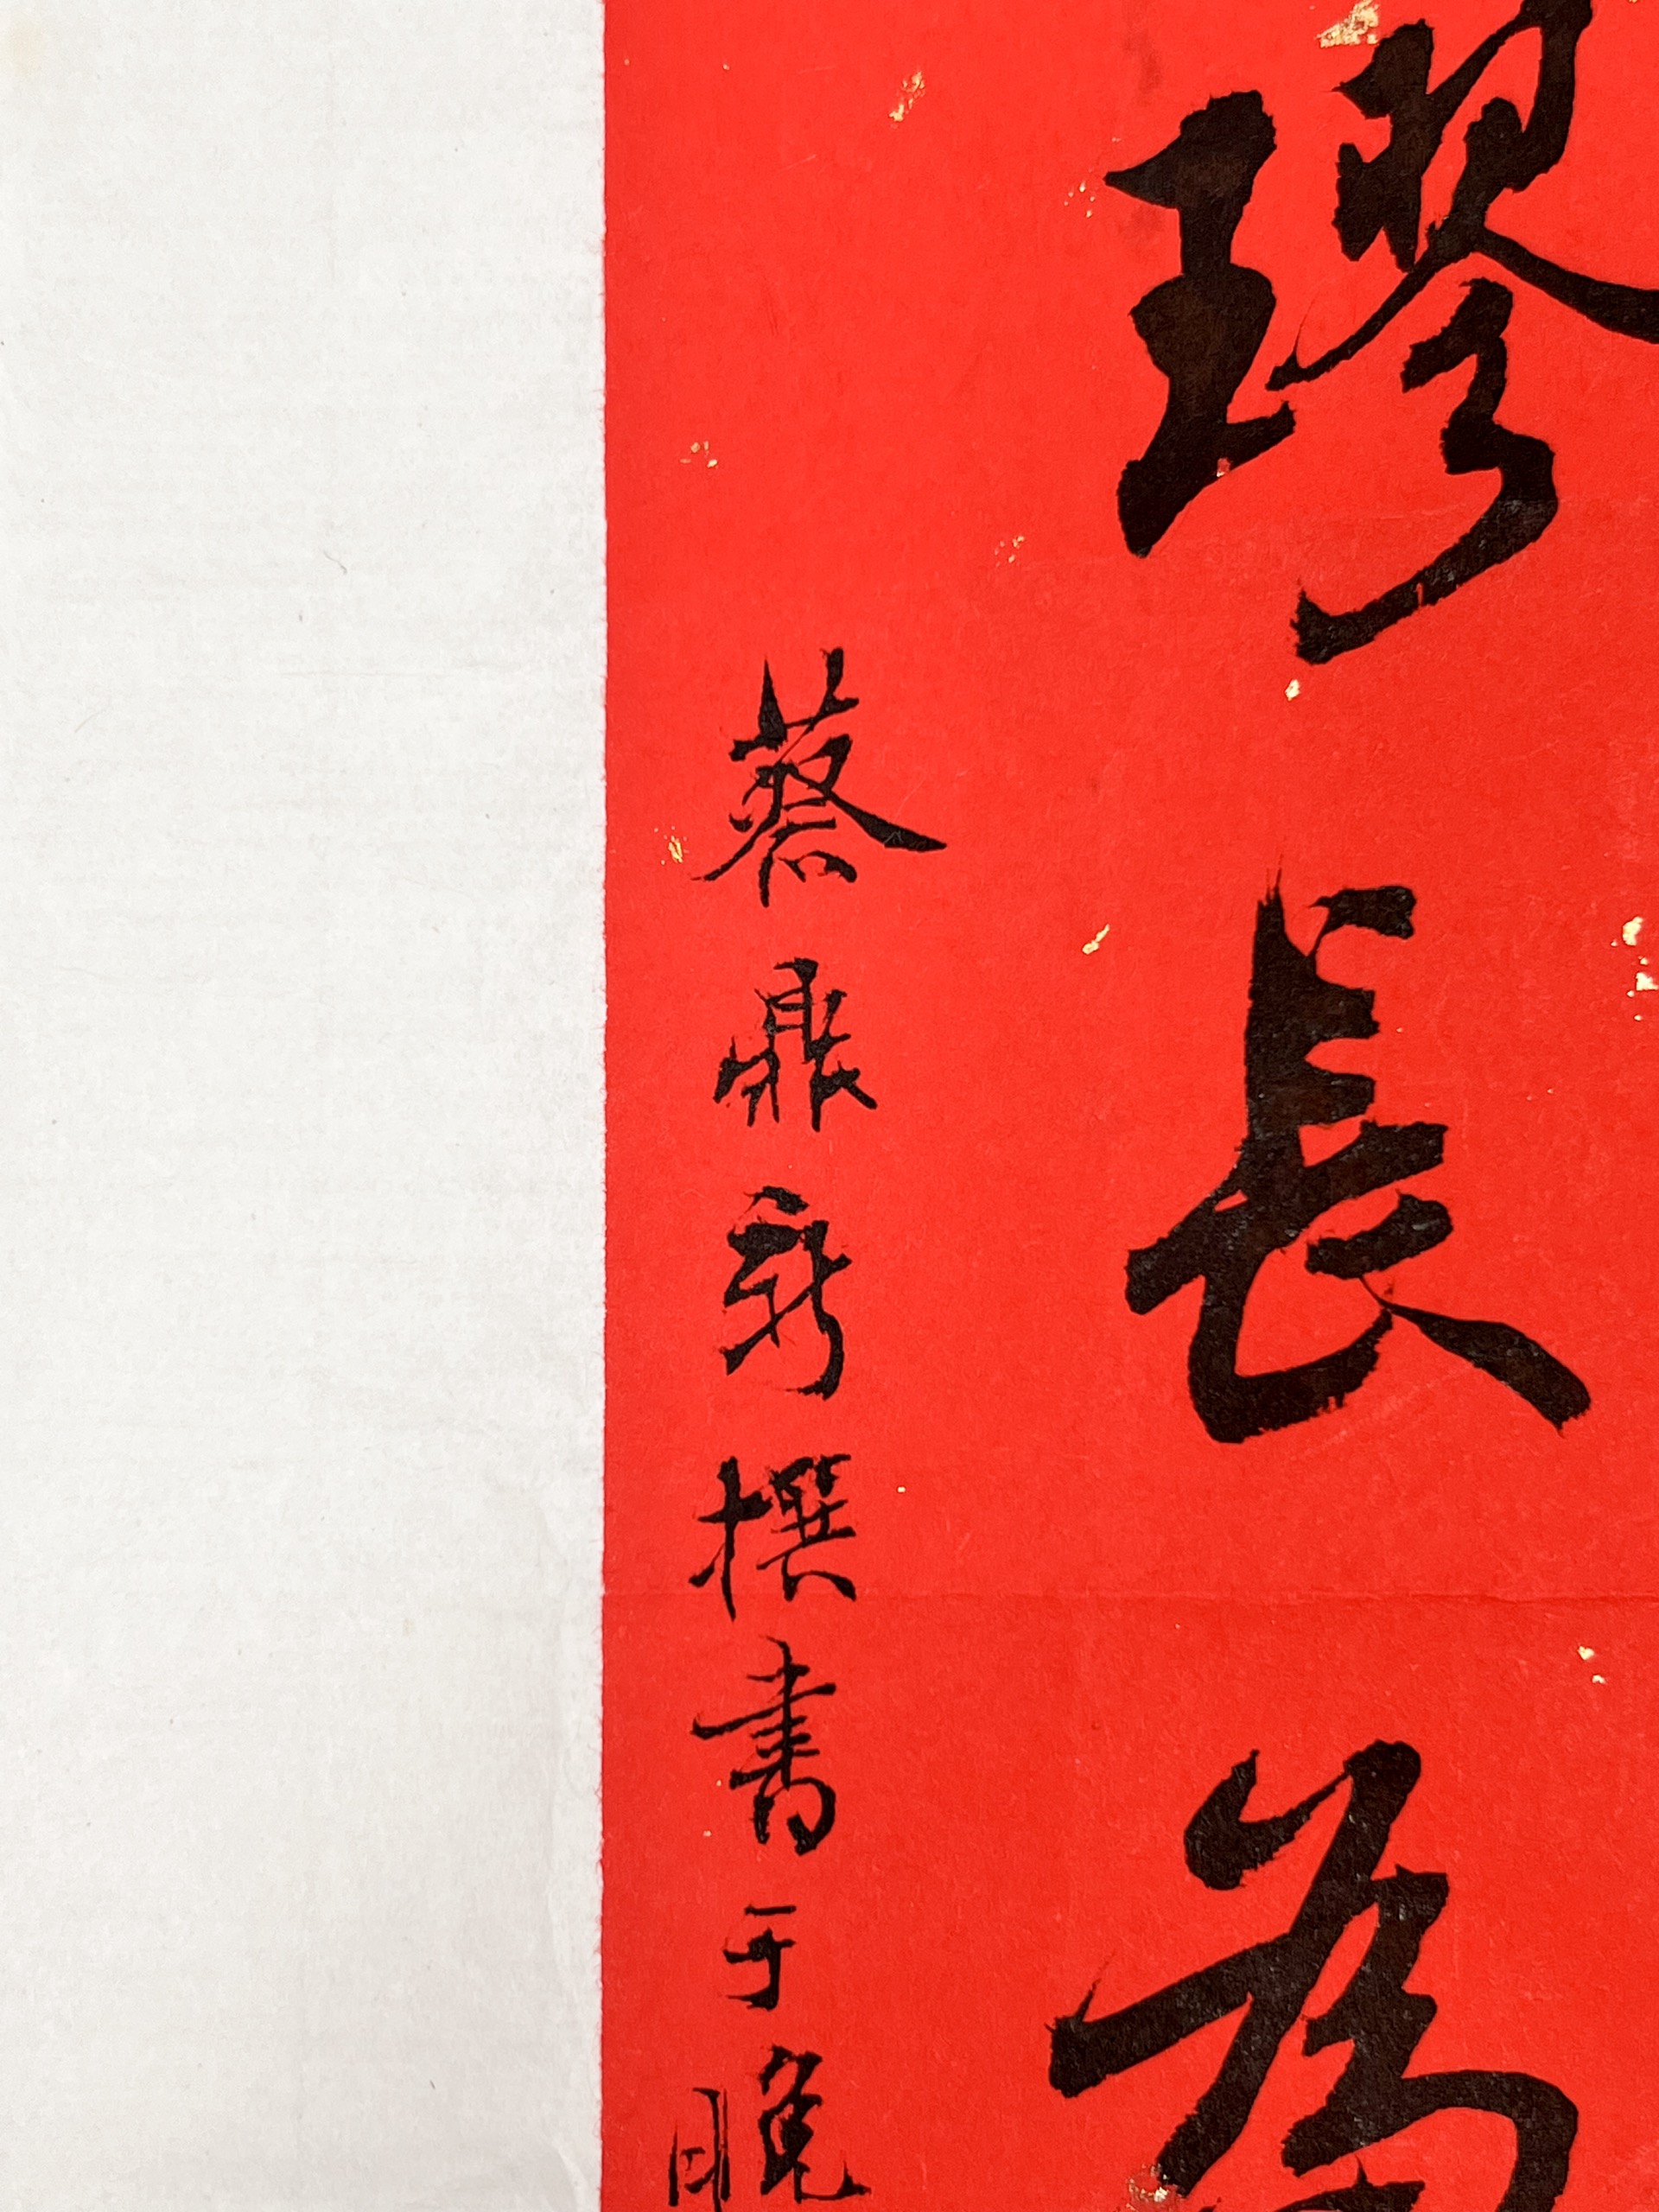 璆長為
蔡鼎新撰書于晚